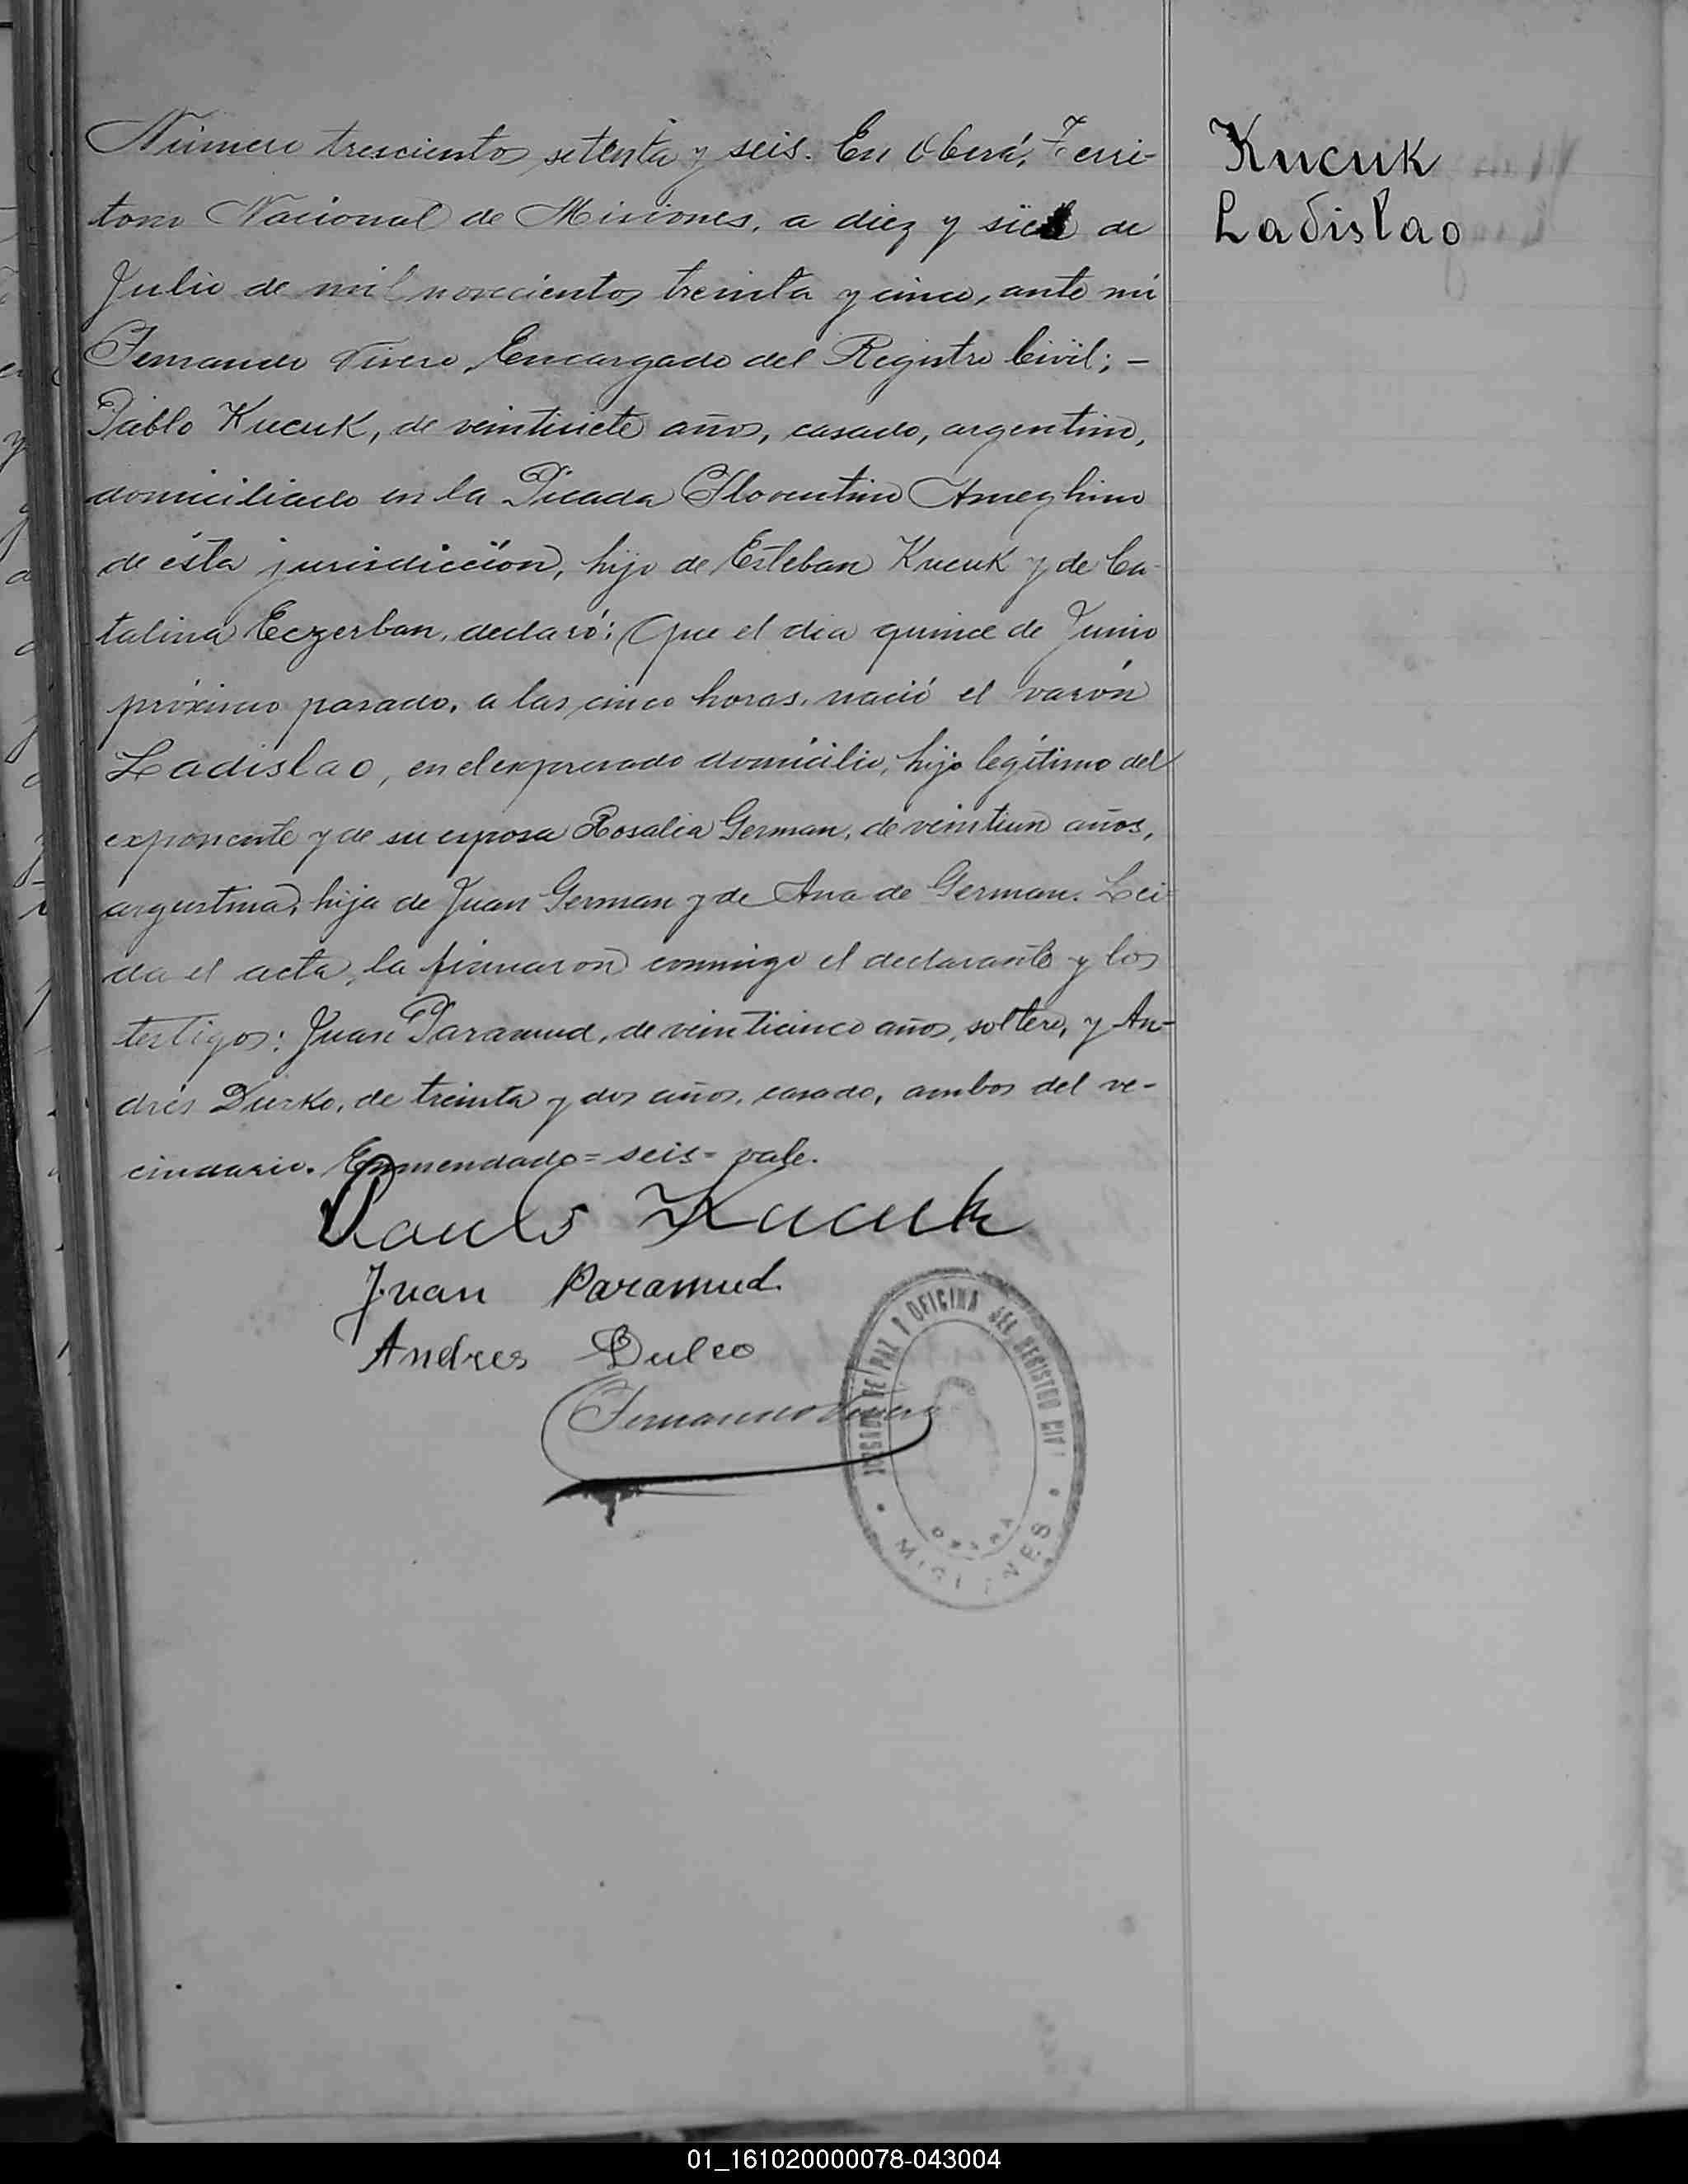 Número trescientos setenta y seis. En Oberá, Terri-
torio Nacional de Misiones, a diez y seis de
Julio de mil novecientos treinta y cinco, ante mí
Fernando Vivero, Encargado del Registro Civil; -
Pablo Kucuk, de veintisiete años, casado, argentino,
domiciliado en la Picada Florentino Ameghino
de ésta jurisdicción, hijo de Esteban Kucuk y de Ca-
talina Eczerban, declaró: Que el día quince de Junio
próximo pasado, a las cinco horas, nació el varón
Ladislao, en el expresado domicilio, hijo legítimo del
exponente y de su esposa Rosalia German, de veintiun años,
argentina, hija de Juan German y de Ana de German. Lei-
da el acta, la firmaron conmigo el declarante y los
testigos: Juan Paramud, de veinticinco años, soltero, y An-
drés Durko, de treinta y dos años, casado, ambos del ve-
cindario. Enmendado = seis - vale.
Kucuk
Juan Paramud
Andres
Fernando Vivero
JUZGADO DE PAZ Y OFICINA DEL REGISTRO CIVIL
OBERA
MISIONES
Kucuk
Ladislao
01_161020000078-043004